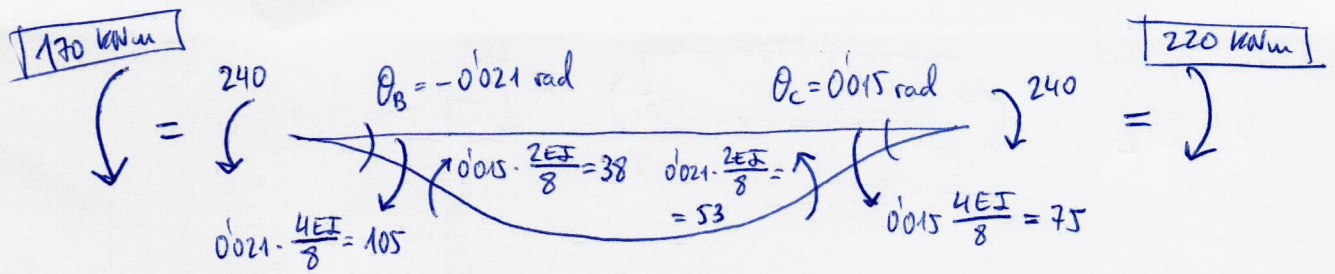 170 kNm
220 kNm
= 240
θB = -0'021 rad
θC = 0'015 rad
240 =
0'015 · 2EI/8 = 38
0'021 · 2EI/8 =
= 53
0'021 · 4EI/8 = 105
0'015 4EI/8 = 75